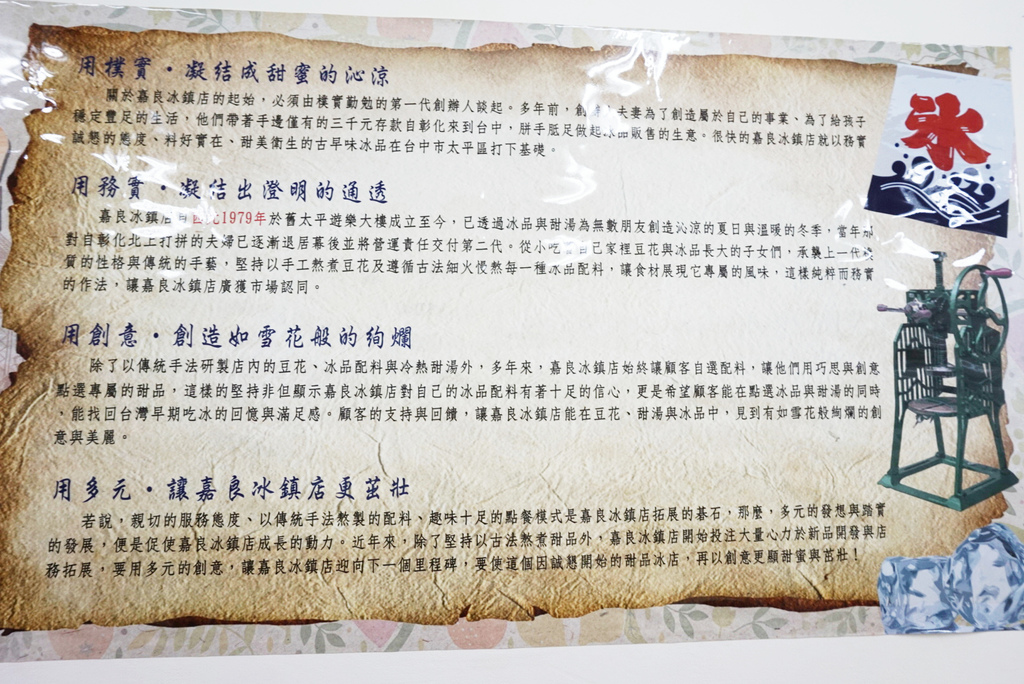 用樸實・凝結成甜蜜的沁涼
關於嘉良冰鎮店的起始，必須由樸實勤勉的第一代創辦人談起。多年前，創辦人夫妻為了創造屬於自己的事業、為了給孩子
穩定豐足的生活，他們帶著手邊僅有的三千元存款自彰化來到台中，胼手胝足做起冰品販售的生意。很快的嘉良冰鎮店就以務實
誠懇的態度、料好實在、甜美衛生的古早味冰品在台中市太平區打下基礎。
用務實・凝結出澄明的通透
嘉良冰鎮店自西元1979年於舊太平遊樂大樓成立至今，已透過冰品與甜湯為無數朋友創造沁涼的夏日與溫暖的冬季，當年那
對自彰化北上打拼的夫婦已逐漸退居幕後並將營運責任交付第二代。從小吃著自己家裡豆花與冰品長大的子女們，承襲上一代樸
質的性格與傳統的手藝，堅持以手工熬煮豆花及遵循古法細火慢熬每一種冰品配料，讓食材展現它專屬的風味，這樣純粹而務實
的作法，讓嘉良冰鎮店廣獲市場認同。
用創意・創造如雪花般的絢爛
除了以傳統手法研製店內的豆花、冰品配料與冷熱甜湯外，多年來，嘉良冰鎮店始終讓顧客自選配料，讓他們用巧思與創意
點選專屬的甜品，這樣的堅持非但顯示嘉良冰鎮店對自己的冰品配料有著十足的信心，更是希望顧客能在點選冰品與甜湯的同時
，能找回台灣早期吃冰的回憶與滿足感。顧客的支持與回饋，讓嘉良冰鎮店能在豆花、甜湯與冰品中，見到有如雪花般絢爛的創
意與美麗。
用多元・讓嘉良冰鎮店更茁壯
若說，親切的服務態度、以傳統手法熬製的配料、趣味十足的點餐模式是嘉良冰鎮店拓展的碁石，那麼，多元的發想與踏實
的發展，便是促使嘉良冰鎮店成長的動力。近年來，除了堅持以古法熬煮甜品外，嘉良冰鎮店開始投注大量心力於新品開發與店
務拓展，要用多元的創意，讓嘉良冰鎮店迎向下一個里程碑，要使這個因誠懇開始的甜品冰店，再以創意更顯甜蜜與茁壯！
氷